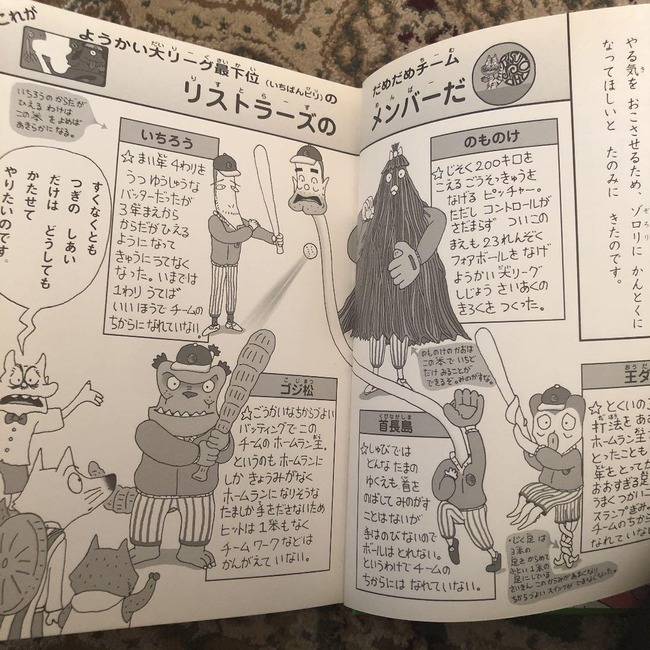 これが
ようかい大リーグ最下位（いちばんビリ）の
だめだめチーム
リストラーズの
メンバーだ
やる気を おこさせるため、ゾロリに かんとくに
なってほしいと たのみに きたのです。
いちろうの からだが
ひえる わけは
この本 を よめば
あきらかになる。
すくなくとも
つぎの しあい
だけは どうしても
かたせて
やりたいのです。
いちろう
☆まい年 4わりを
うつ ゆうしゅうな
バッターだったが
3年まえから
からだが ひえる
ように なって
きゅうに うてなく
なった。いまでは
1わり うてば
いいほうで チームの
ちからに なれていない。
のものけ
☆じそく200キロを
こえる ごうそっきゅうを
なげる ピッチャー。
ただし コントロールが
さだまらず ついこの
まえも 23れんぞく
フォアボールを なげ
ようかい大リーグ
しじょう さいあくの
きろくを つくった。
のものけの かおは
この本で いちど
だけ みることが
できるぞ。みのがすな。
ゴジ松
☆ごうかいな ちからづよい
バッティングで この
チームの ホームラン王。
というのも ホームランに
しか きょうみがなく
ホームランになりそうな
たましか 手を ださないため
ヒットは 1本もなく
チームワークなどは
かんがえて いない。
首長島
☆しゅびでは
どんな たまの
ゆくえも 首を
のばして みのがす
ことは ないが
手は のびないので
ボールは とれない。
というわけで チームの
ちからには なれていない。
王ダ
☆とくいの
打法を あ
ホームラン王
とったことも
年を とってか
おおすぎる 足
うまく つかいこ
スランプぎみ。
チームの ちから
なれてい
じく足 は
3本の
足を からめて
ふとい 1本の
足に している
さいきん この からみが あまくなり
ちからづよい スイングが できなくなった。